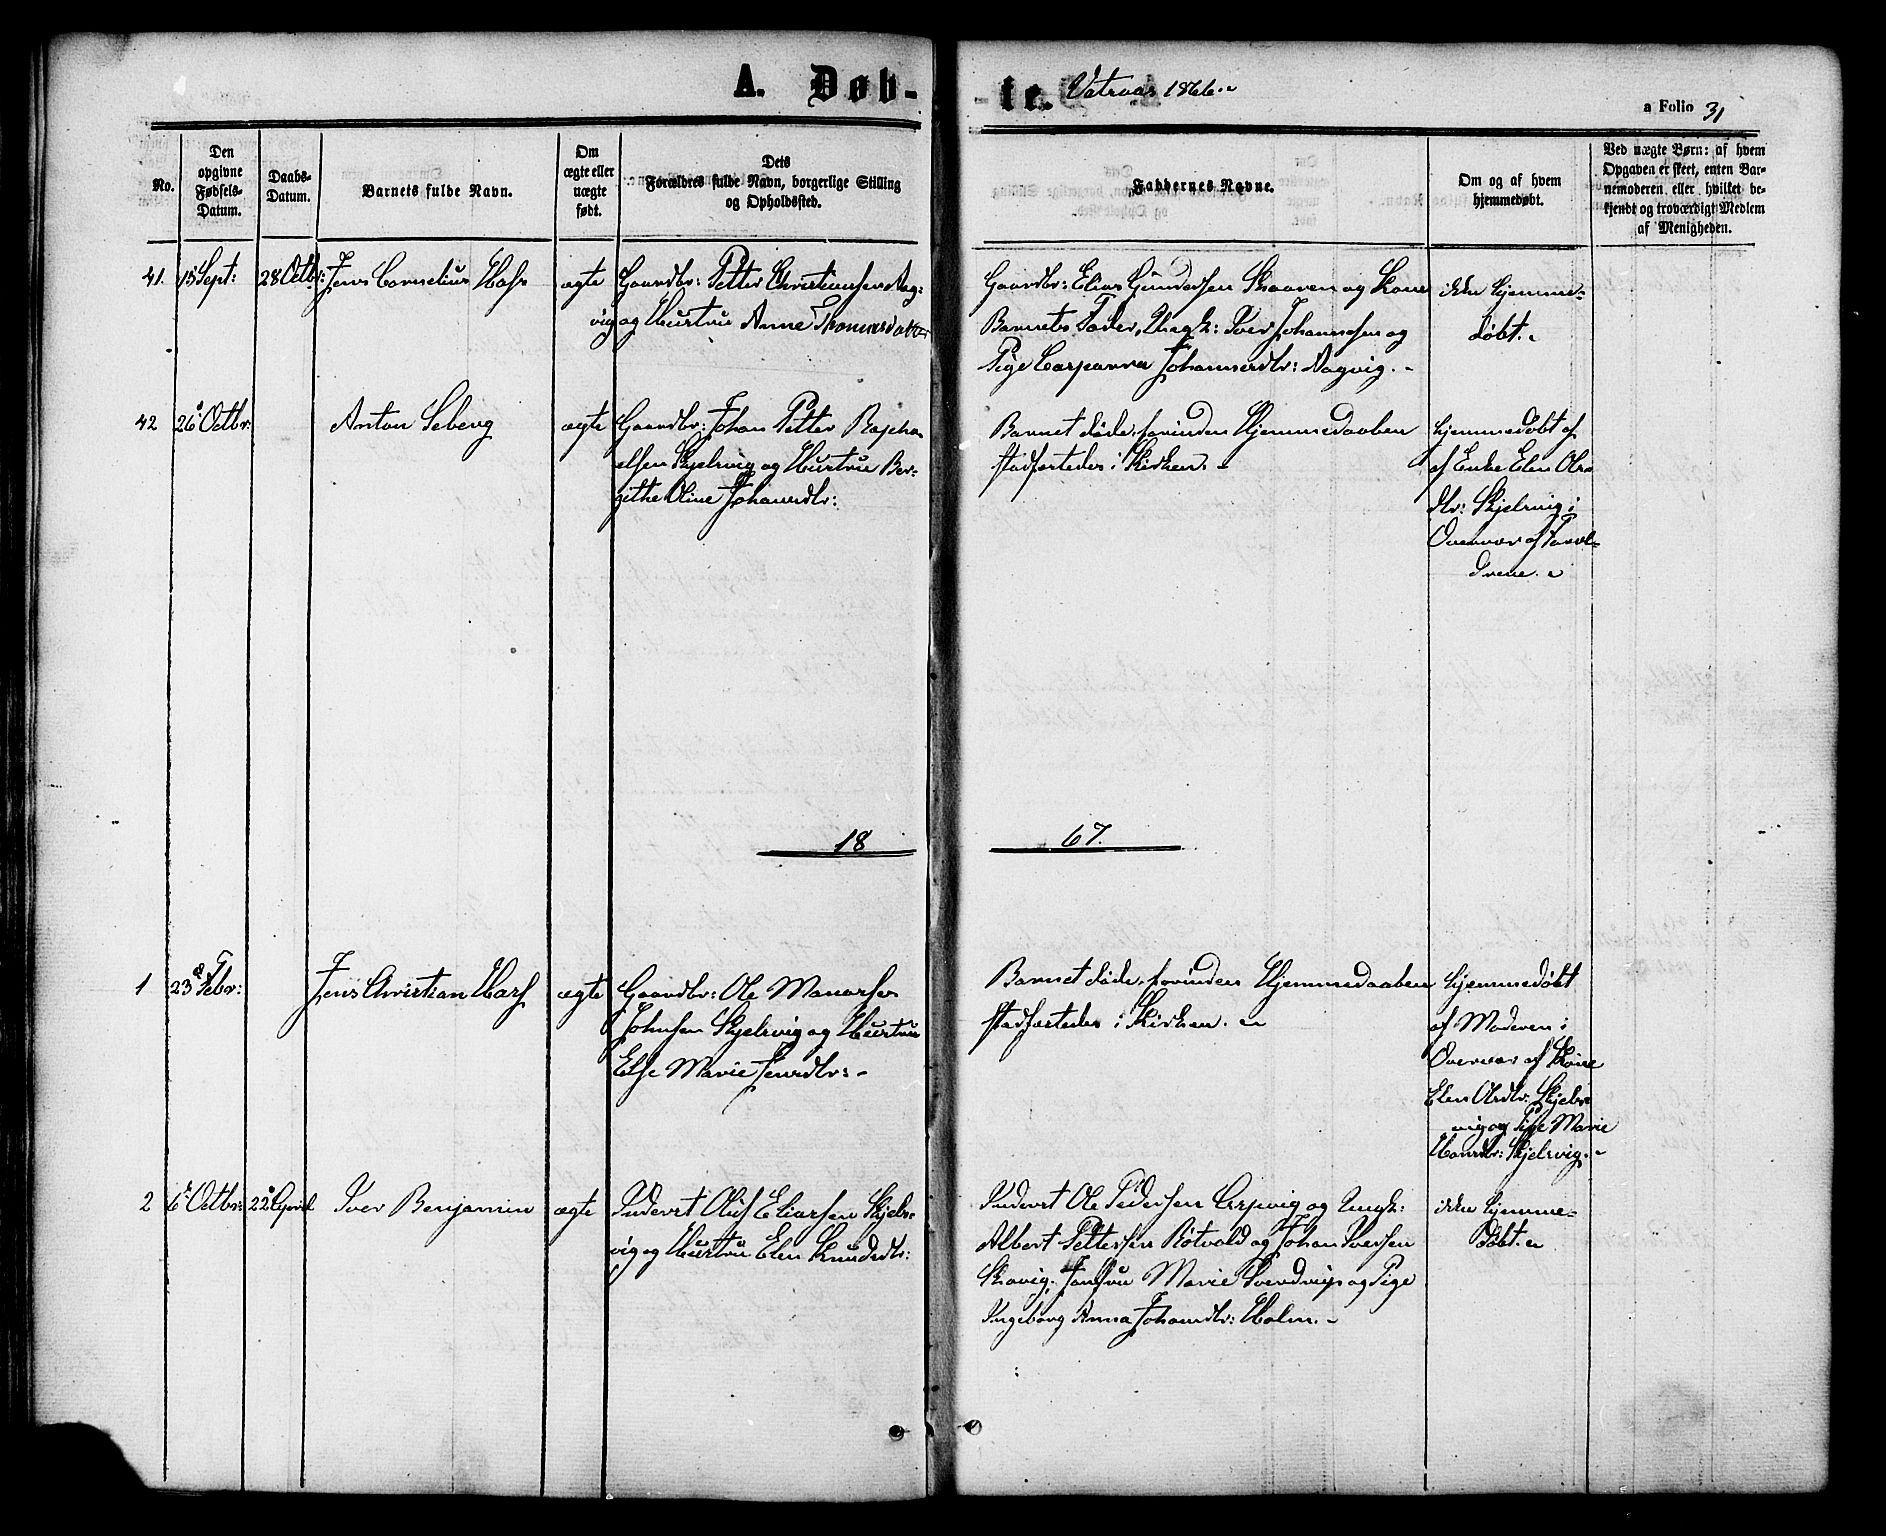 A. Døb-
te. Vatnaas 1866.
a Folio 31
No.
Den opgivne Fødsels-Datum.
Daabs-Datum.
Barnets fulde Navn.
Om ægte eller uægte født.
Dets Forældres fulde Navn, borgerlige Stilling og Opholdssted.
Faddernes Navne.
Om og af hvem hjemmedøbt.
Ved uægte Børn: af hvem
Opgaven er skeet, enten Bar-
nemoderen eller hvilket be-
kjendt og troværdigt Medlem
af Menigheden.
41. 15 Sept: 28 Octbr: Jens Cornelius Hass ægte Gaardbr: Petter Christiansen Aag-
vig og Hustru Anne Thomasdatter
Gaardbr: Elias Gundersen Skaaren og Kone
Barnets Fader, Ungk: Iver Johannesen og
Pige Caspara Johannesdtr: Aagvig.
ikke hjemme-
døbt.
42 26 Octbr: Anton Seberg ægte Gaardbr: Johan Petter Rapha-
elsen Skjelvig og Hustru Ber-
githe Oline Johansdtr:
Barnet døde, forinden Hjemmedaaben
stadfæstedes i Kirken.
hjemmedøbt af
af Enke Elen Ols-
dtr: Skjelvig i
Overvær af Foræl-
drene.
18 67.
1 23 Febr: Jens Christian Hass ægte Gaardbr: Ole Manasse
Johnsen Skjelsvig og Hustru
Else Marie Jensdtr:
Barnet døde, forinden Hjemmedaaben
stadfæstedes i Kirken.
hjemmedøbt
af Moderen i
Overvær af Kone
Elen Olsdtr: Skjels-
vig og Pige Marie
Hansdtr: Skjelsvig.
2 6 Octbr: 22 April Iver Benjamin ægte Inderst Oluf Eliassen Skjels-
vig og Hustru Elen Knudsdtr:
Inderst Ole Pedersen Aspevig og Ungk:
Albert Pettersen Røtvold og Johan Iversen
Skavig, Jomfru Marie Sverdrup og Pige
Ingeborg Anna Johansdtr: Holm.
ikke hjemme-
døbt.